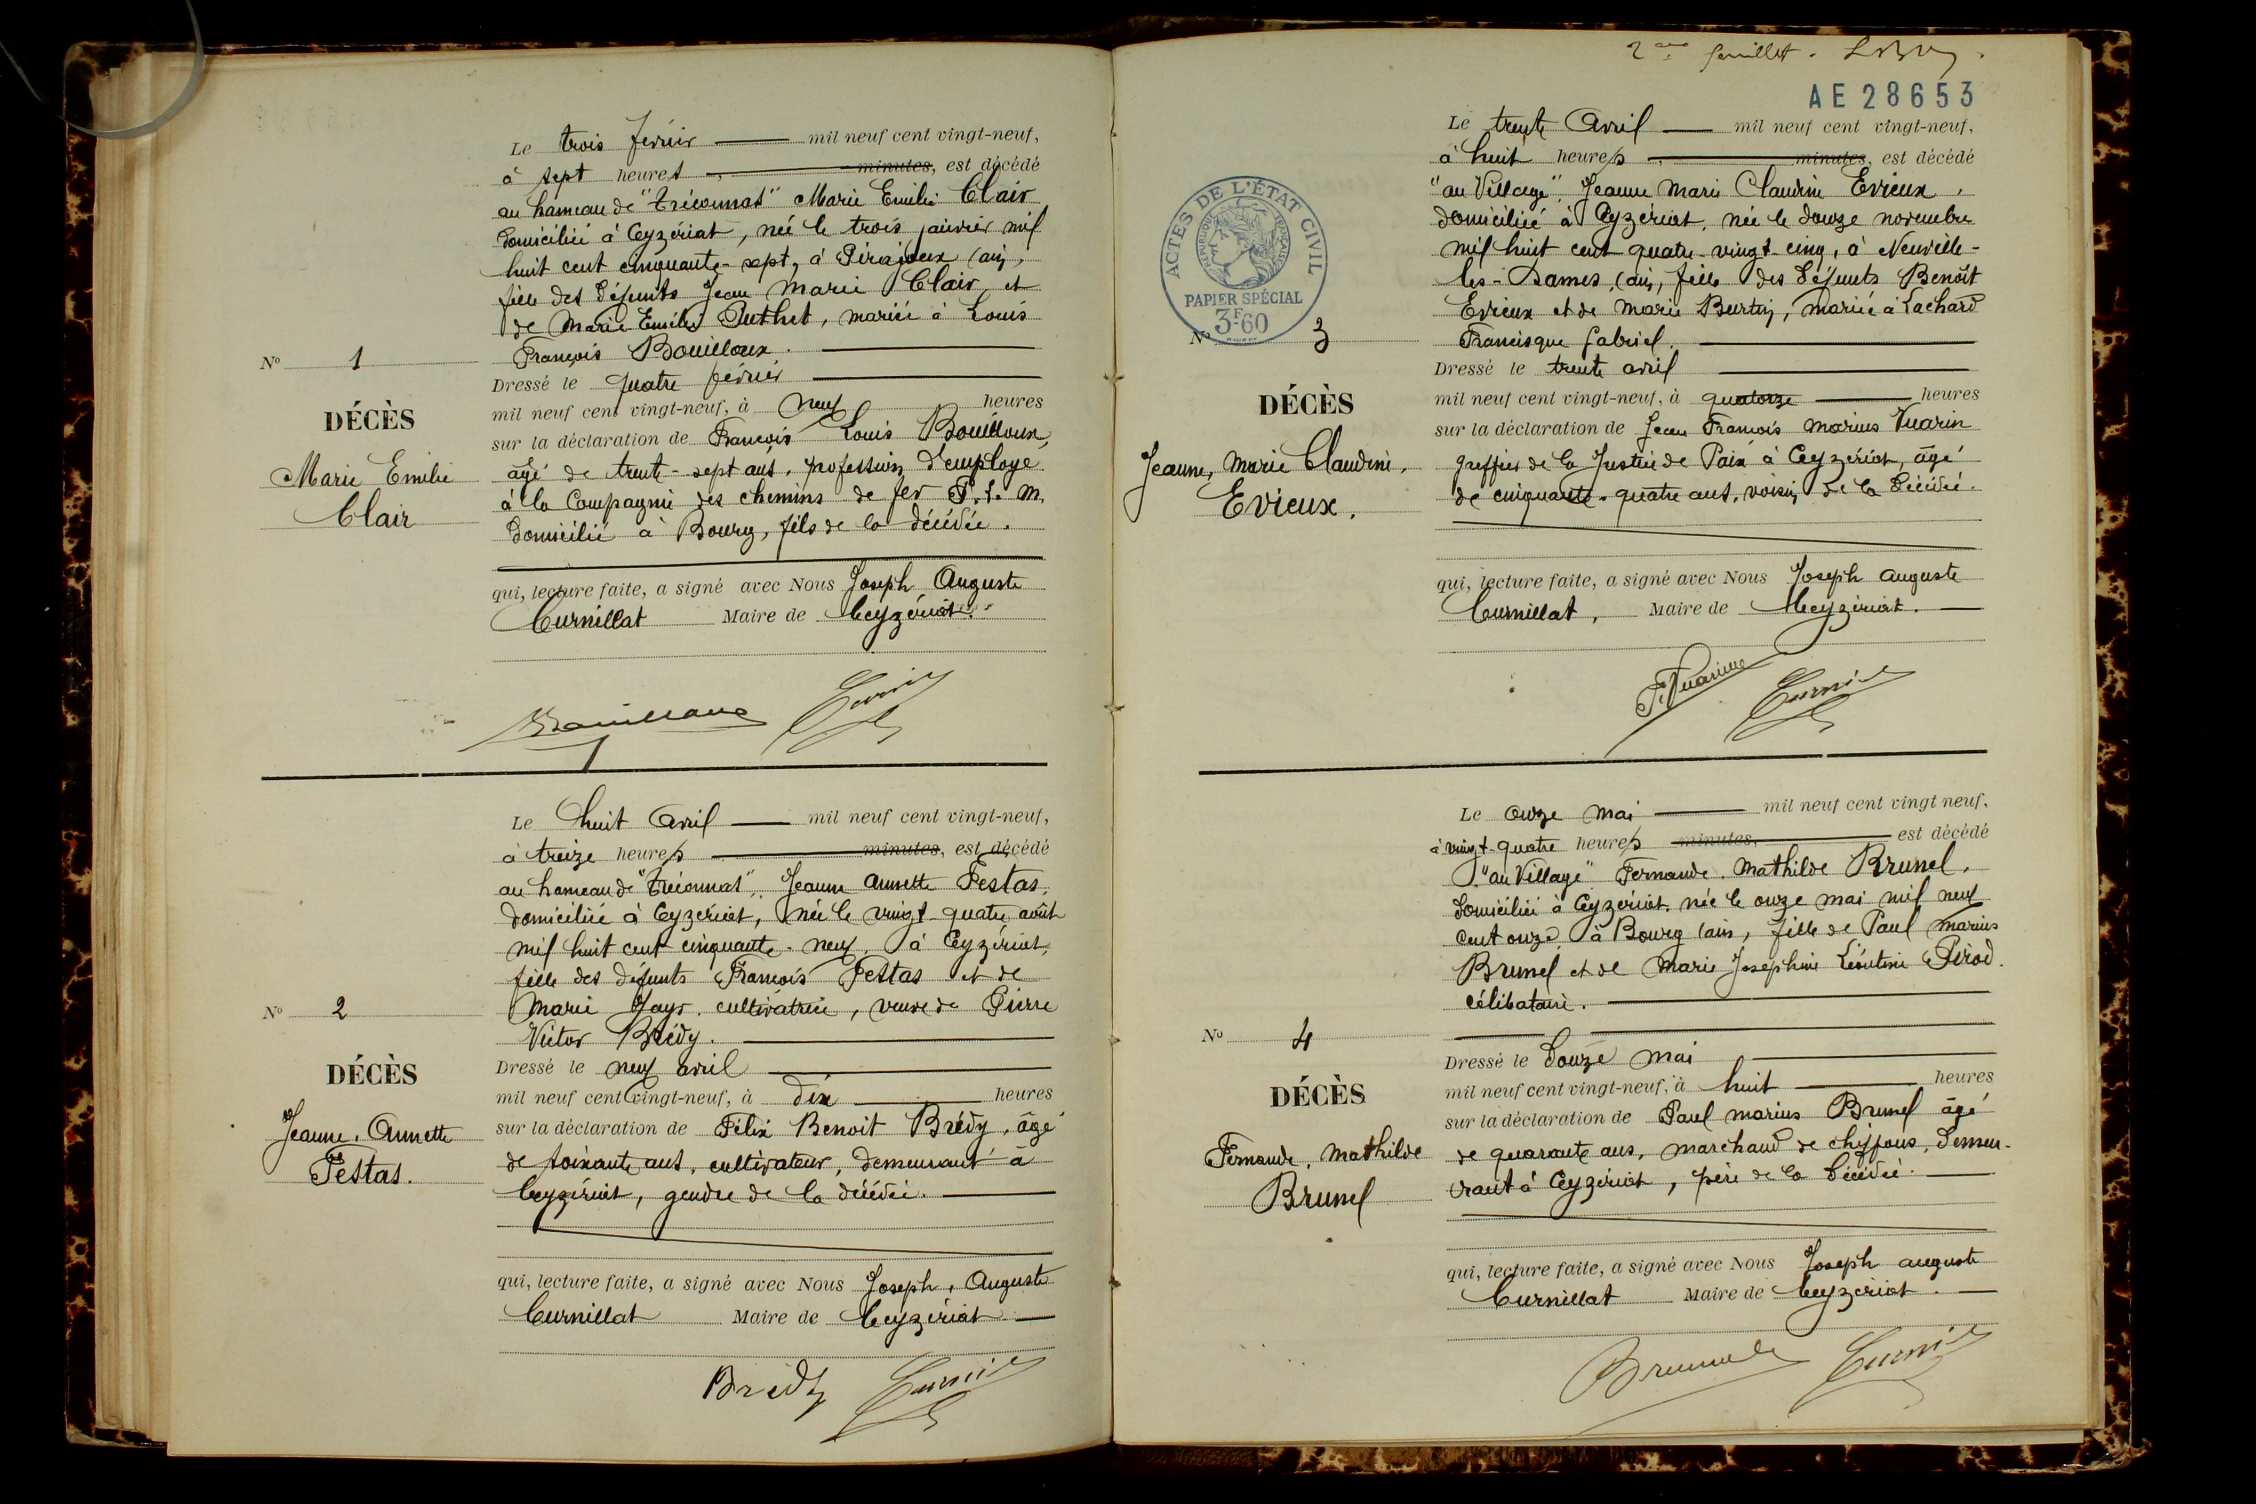 Le trois février mil neuf cent vingt-neuf,
à sept heures minutes, est décédé
au hameau de "Tréconnas" Marie Emilie Clair
domiciliée à Ceyzériat, née le trois janvier mil
huit cent cinquante-sept, à Pirajoux (ain,
fille des défunts Jean Marie Clair et
de Marie Emilie Puthet, mariée à Louis
François Bouilloux.
Dressé le quatre février
mil neuf cent vingt-neuf, à neuf heures
sur la déclaration de François Louis Bouilloux,
âgé de trente-sept ans, profession d'employé
à la Compagnie des chemins de fer P. L. M.
domicilié à Bourg, fils de la décédée.
qui, lecture faite, a signé avec Nous Joseph Auguste
Curnillat Maire de Ceyzériat.
No 1
DÉCÈS
Marie Emilie
Clair
Le huit Avril mil neuf cent vingt-neuf,
à treize heures minutes, est décédé
au hameau de "Tréconnas", Jeanne Annette Festas,
domiciliée à Ceyzériat, née le vingt-quatre août
mil huit cent cinquante-neuf, à Ceyzériat,
fille des défunts François Festas et de
Marie Jays, cultivatrice, veuve de Pierre
Victor Brédy.
Dressé le neuf avril
mil neuf cent vingt-neuf, à dix heures
sur la déclaration de Félix Benoit Brédy, âgé
de soixante ans, cultivateur, demeurant à
Ceyzériat, gendre de la décédée.
qui, lecture faite, a signé avec Nous Joseph, Auguste
Curnillat Maire de Ceyzériat
Brédy
No 2
DÉCÈS
Jeanne, Annette
Festas.
2me feuillet.
AE 28653
Le trente Avril mil neuf cent vingt-neuf,
à huit heures minutes, est décédé
"au Village", Jeanne Marie Claudine Evieux,
domiciliée à Ceyzériat, née le douze novembre
mil huit cent quatre-vingt cinq, à Neuville-
les-Dames, (ain, fille des défunts Benoît
Evieux et de Marie Burtin, mariée à Lachard
Francisque Gabriel.
Dressé le trente avril
mil neuf cent vingt-neuf, à quatorze heures
sur la déclaration de Jean François Marius Vuarin
greffier de la Justice de Paix à Ceyzériat, âgé
de cinquante-quatre ans, voisin de la décédée.
qui, lecture faite, a signé avec Nous Joseph auguste
Curnillat, Maire de Ceyzériat.
ACTES DE L'ÉTAT CIVIL
RÉPUBLIQUE FRANÇAISE
PAPIER SPÉCIAL
3F.60
No 3
DÉCÈS
Jeanne, Marie Claudine,
Evieux.
Le onze mai mil neuf cent vingt neuf,
à vingt-quatre heures minutes, est décédé
"au Village" Fernande, Mathilde Brunel,
domiciliée à Ceyzériat, née le onze mai mil neuf
cent onze, à Bourg (ain, fille de Paul Marius
Brunel et de Marie Josephine Léontine Pirod.
célibataire.
Dressé le douze mai
mil neuf cent vingt-neuf, à huit heures
sur la déclaration de Paul marius Brunel âgé
de quarante ans, marchand de chiffons, demeu-
rant à Ceyzériat, père de la décédée.
qui, lecture faite, a signé avec Nous Joseph auguste
Curnillat Maire de Ceyzériat.
No 4
DÉCÈS
Fernande, Mathilde
Brunel